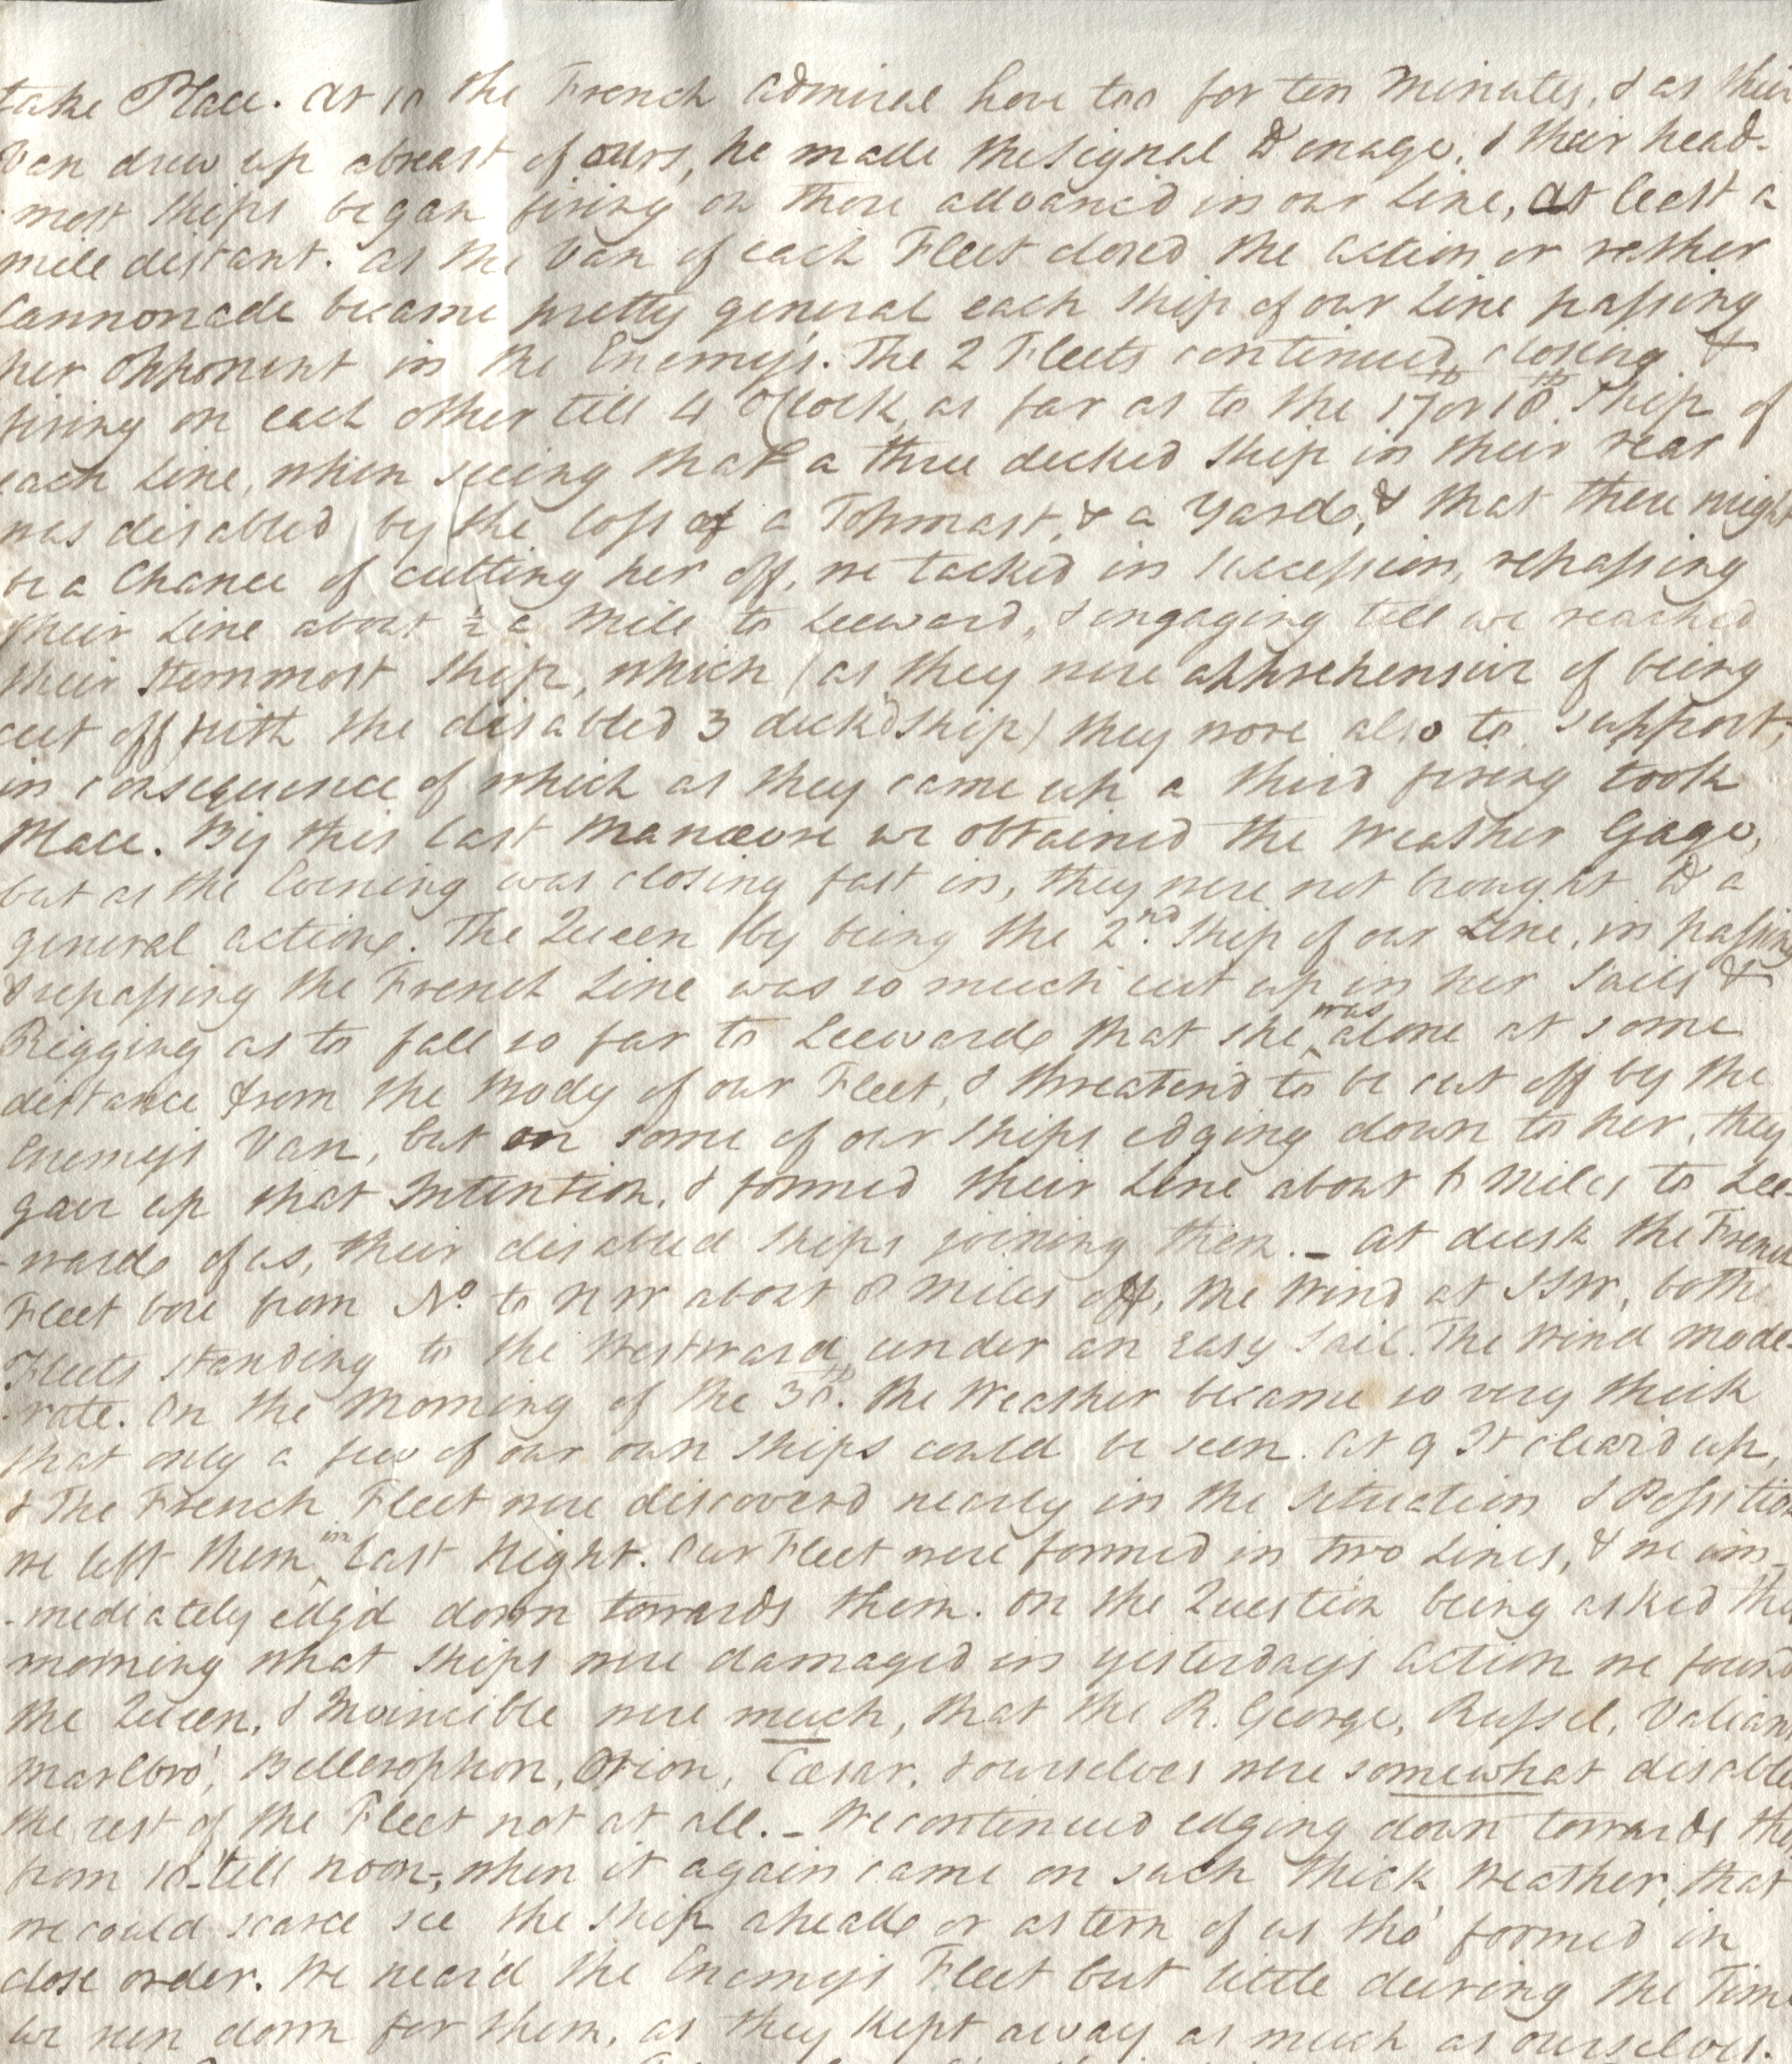 take Place. At 10 the French Admiral hove too for ten Minutes, & as their
Van drew up abreast of ours, he made the Signal to engage, & their head-
-most Ships began firing on those advanc'd in our Line, at least a
mile distant. as the Van of each Fleet closed the Action or rather
Cannonade became pretty general each Ship of our Line passing
her Opponent in the Enemy's. The 2 Fleets continued closing &
firing on each other till 4 oClock, as far as to the 17th or 18th Ship of
each Line, when seeing that a three decked Ship in their rear
was disabled by the loss of a Topmast, & a Yard, & that there might
be a Chance of cutting her off, we tacked in Succession, repassing
their Line about ½ a Mile to Leeward, & engaging till we reached
their Sternmost Ship, which (as they were apprehensive of being
cut off with the disabled 3 deck'd Ship) they wore also to support,
in consequence of which as they came up a third firing took
Place. By this last Manœvre we obtained the Weather Gage,
but as the Evening was closing fast in, they were not brought to a
general action. The Queen by being the 2nd. Ship of our Line, in passing
& repassing the French Line was so much cut up in her Sails &
Rigging as to fall so far to Leeward that she was alone at some
distance from the Body of our Fleet, & threaten'd to be cut off by the
Enemy's Van, but on some of our Ships edging down to her, they
gave up that Intention, & formed their Line about 6 Miles to Lee
-ward of us, their disabled Ships joining them. - At dusk the French
Fleet bore from No. to NW about 8 Miles off, the Wind at SSW, both
Fleets standing to the Westward, under an easy Sail. The Wind mode-
-rate. On the Morning of the 30th. the Weather became so very thick
that only a few of our own Ships could be seen. At 9 It clear'd up,
& The French Fleet were discover'd nearly in the Situation & Position
we left them in last Night. Our Fleet were formed in two Lines, & we im-
-mediately edg'd down towards them. On the Question being asked the
morning what Ships were damaged in yesterday's Action we found
the Queen, & Invincible were much, that the R. George, Russel, Valiant
Marlbro', Bellerophon, Orion, Cæsar, & ourselves were somewhat disabled
the rest of the Fleet not at all. - We continued edging down towards them
from 10 till noon, when it again came on such thick Weather, that
we could scarce see the Ship ahead or astern of us tho' formed in
close order. We near'd the Enemy's Fleet but little during the Time
we run down for them, as they kept away as much as ourselves.